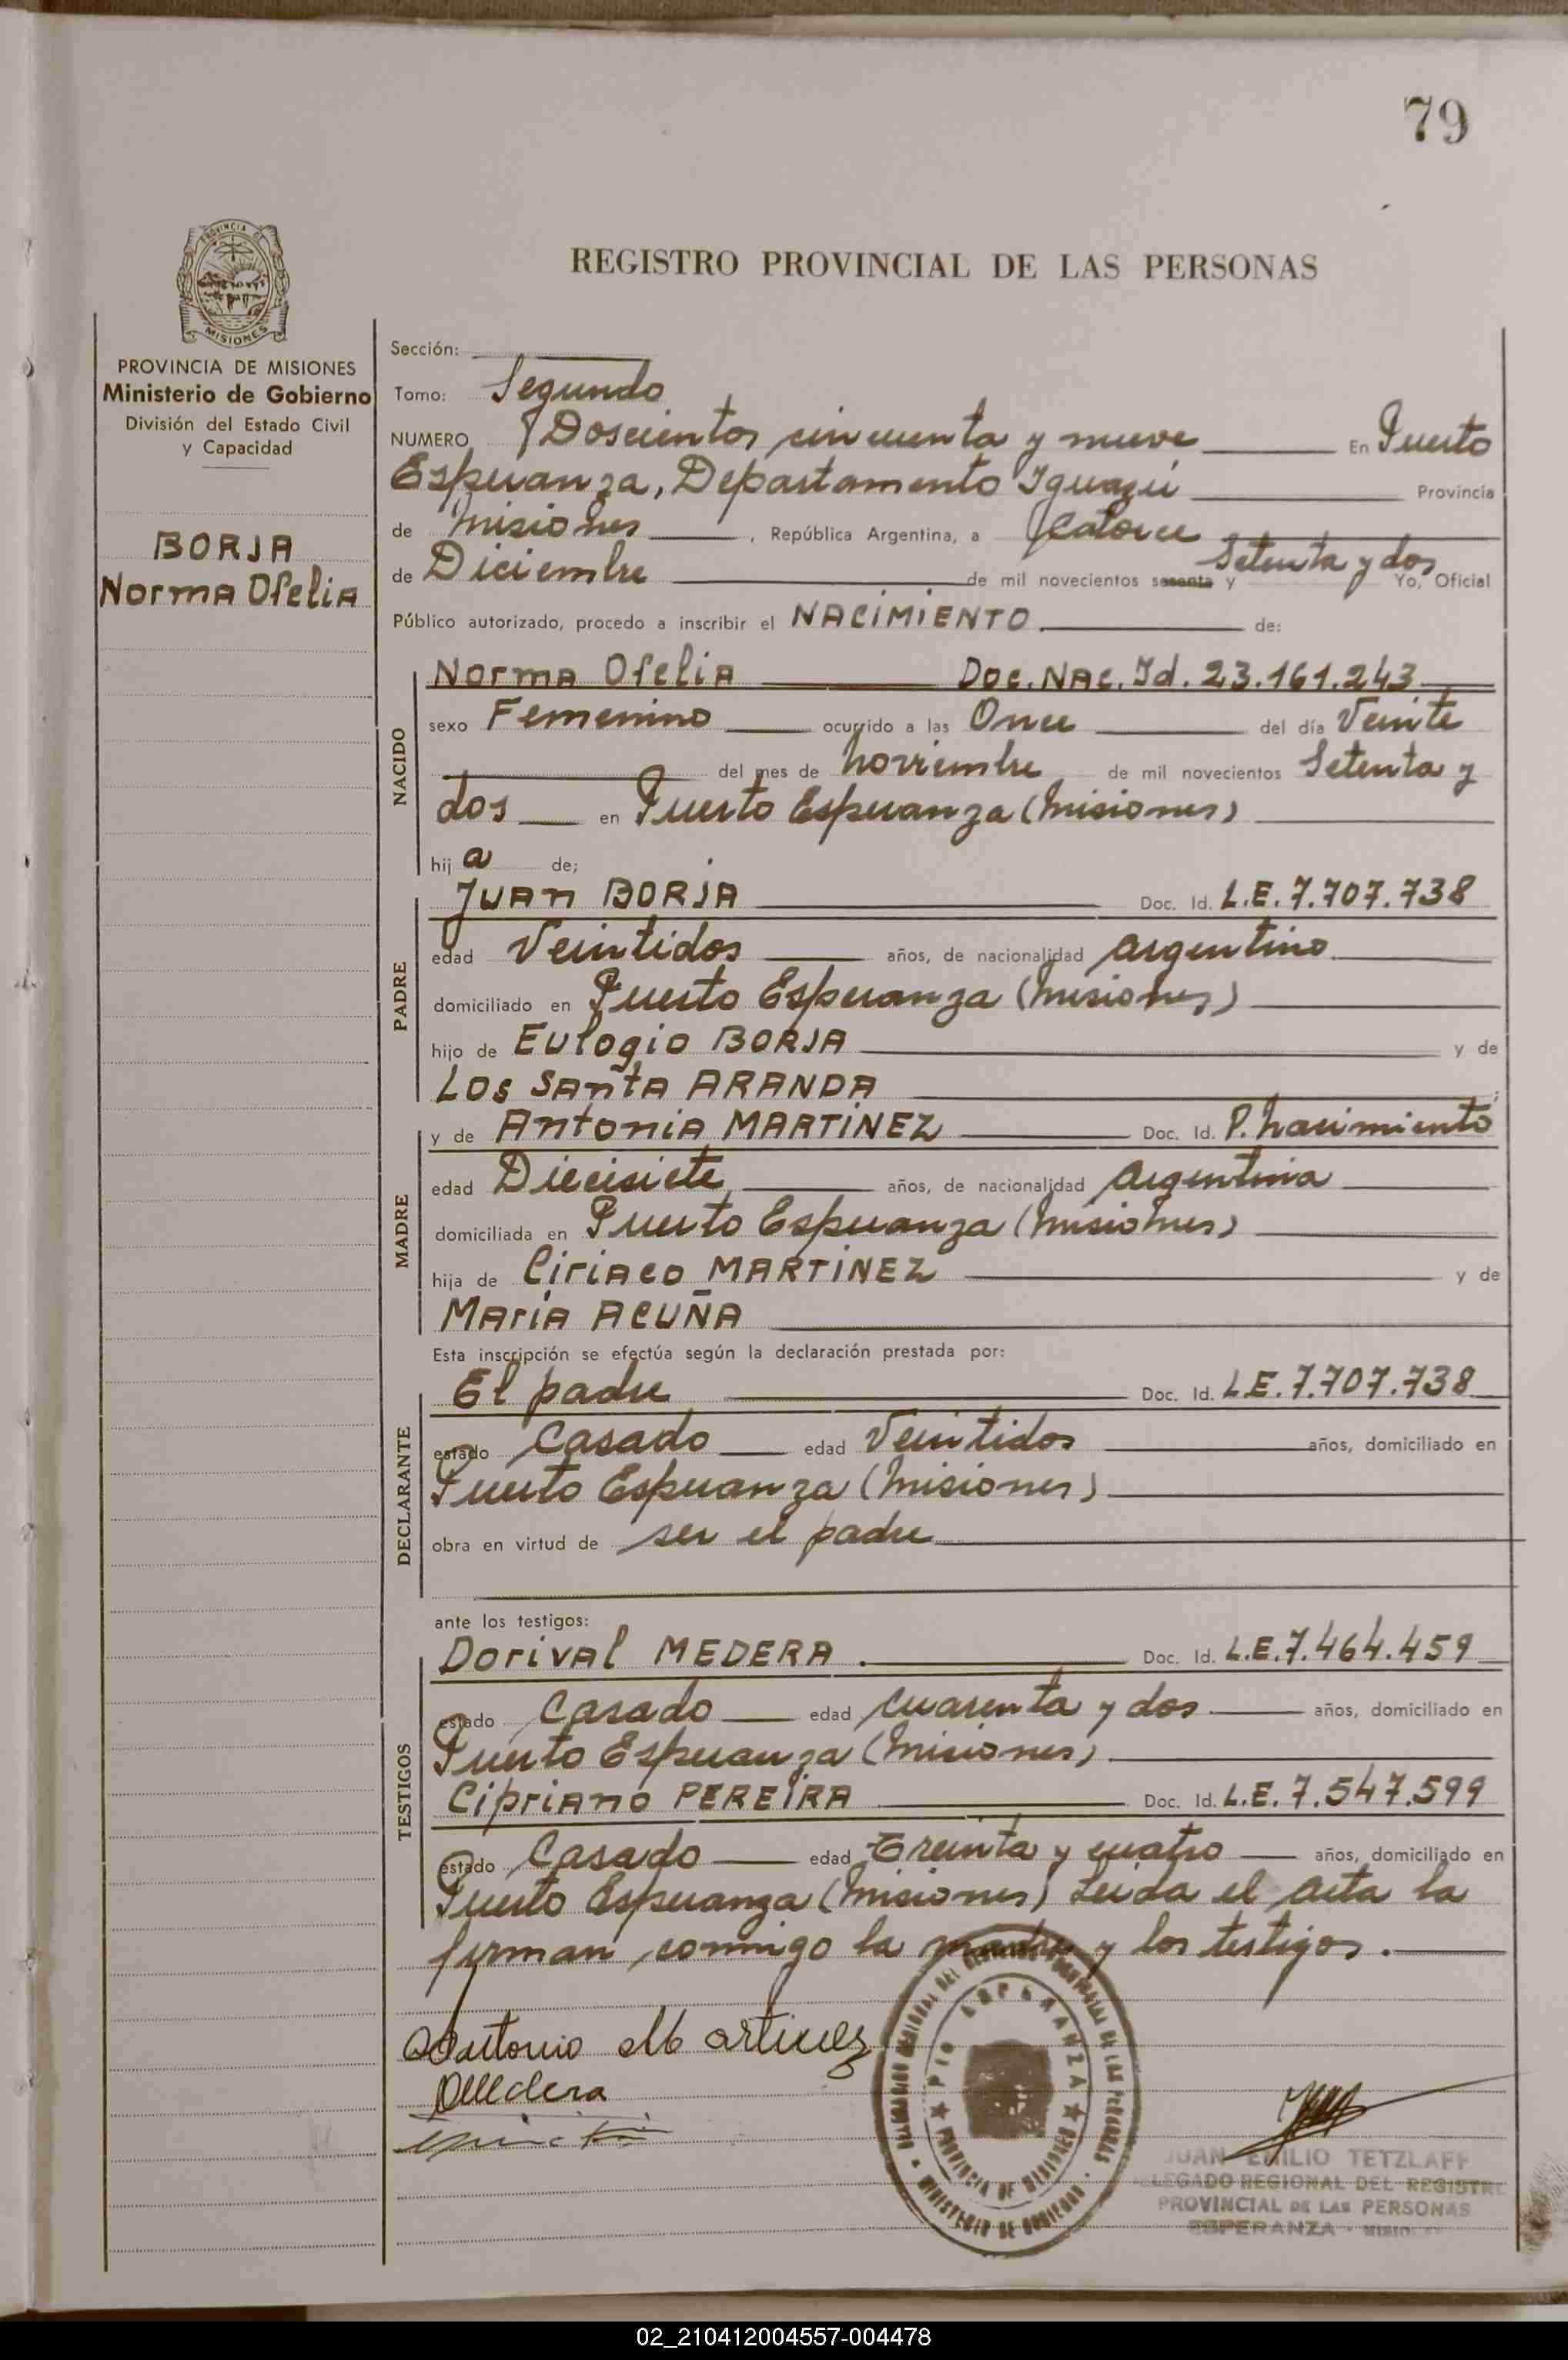 79
PROVINCIA DE
MISIONES
REGISTRO PROVINCIAL DE LAS PERSONAS
PROVINCIA DE MISIONES
Ministerio de Gobierno
División del Estado Civil
y Capacidad
BORJA
Norma Ofelia
Sección:
Tomo: Segundo
NUMERO Doscientos cincuenta y nueve En Puerto
Esperanza, Departamento Iguazú Provincia
de Misiones, República Argentina, a Catorce
de Diciembre de mil novecientos sesenta y Setenta y dos Yo, Oficial
Público autorizado, procedo a inscribir el NACIMIENTO de:
NACIDO
Norma Ofelia Doc. Nac. Id. 23.161.243
sexo Femenino ocurrido a las Once del día Veinte
del mes de Noviembre de mil novecientos Setenta y
dos en Puerto Esperanza (Misiones)
hij a de;
PADRE
Juan BORJA Doc. Id. L.E. 7.707.738
edad Veintidos años, de nacionalidad argentino
domiciliado en Puerto Esperanza (Misiones)
hijo de Eulogio BORJA y de
Los Santa ARANDA
MADRE
y de Antonia MARTINEZ Doc. Id. P. Nacimiento
edad Diecisiete años, de nacionalidad Argentina
domiciliada en Puerto Esperanza (Misiones)
hija de Ciriaco MARTINEZ y de
María ACUÑA
Esta inscripción se efectúa según la declaración prestada por:
DECLARANTE
El padre Doc. Id. L.E. 7.707.738
estado Casado edad Veintidos años, domiciliado en
Puerto Esperanza (Misiones)
obra en virtud de ser el padre
ante los testigos:
TESTIGOS
Dorival MEDERA. Doc. Id. L.E. 7.464.459
estado Casado edad Cuarenta y dos años, domiciliado en
Puerto Esperanza (Misiones)
Cipriano PEREIRA Doc. Id. L.E. 7.547.599
estado Casado edad Treinta y cuatro años, domiciliado en
Puerto Esperanza (Misiones) Leida el acta la
firman conmigo la madre y los testigos.
Antonia Martinez
DMedera
PTO ESPERANZA
PROVINCIA DE MISIONES
MINISTERIO DE GOBIERNO
JUAN EMILIO TETZLAFF
LEGADO REGIONAL DEL REGISTR
PROVINCIAL DE LAS PERSONAS
ESPERANZA - MISIO
02_210412004557-004478